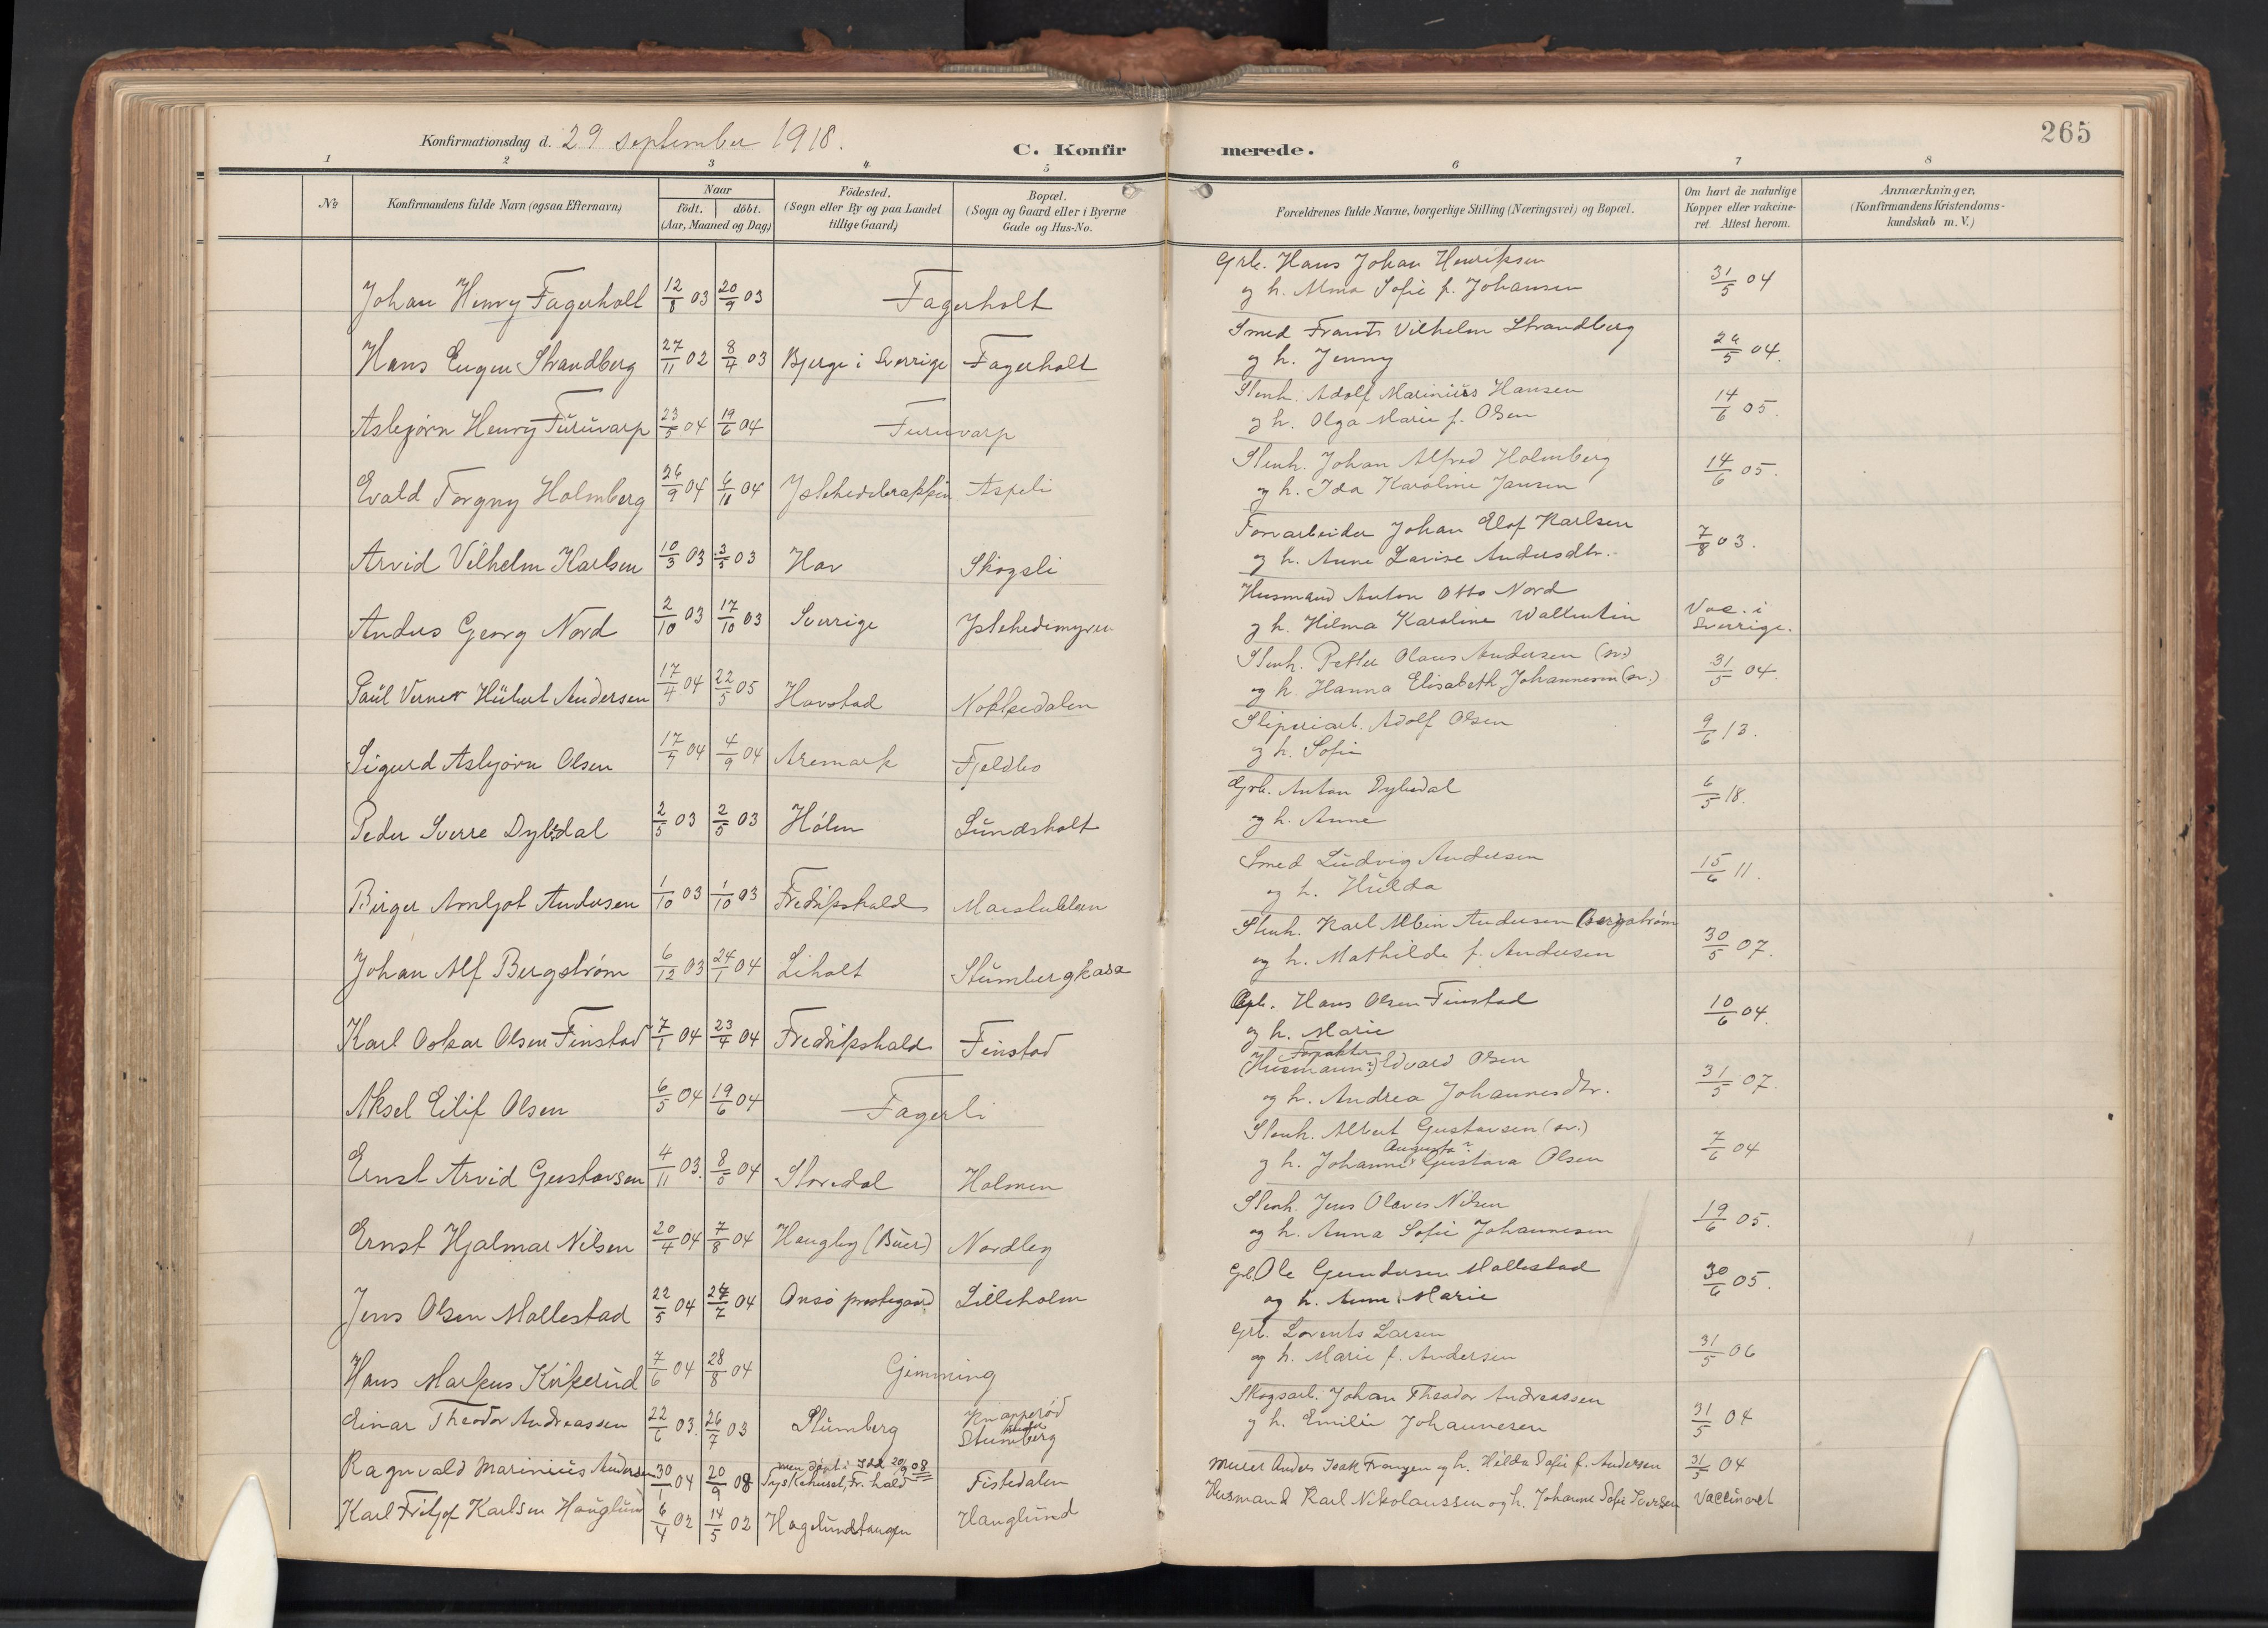 Konfirmationsdag d. 29 september 1918.
C. Konfirmerede.
265
1 2 3 4 5 6 7 8
No
Konfirmandens fulde Navn (ogsaa Efternavn)
Naar
født. døbt.
(Aar, Maaned og Dag)
Födested.
(Sogn eller By og paa Landet
tillige Gaard)
Bopæl.
(Sogn og Gaard eller i Byerne
Gade og Hus-No.
Forældrenes fulde Navne, borgerlige Stilling (Næringsvei) og Bopæl.
Om havt de naturlige
Kopper eller vakcine-
ret Attest herom.
Anmærkninger.
(Konfirmandens Kristendoms-
kundskab m. V.)
Johan Henry Fagerholt 12/8 03 20/9 03 Fagerholt
Grb. Hans Johan Henriksen
og h. Alma Sofie f. Johansen 31/5 04
Hans Eugen Strandberg 27/11 02 8/4 03 Bjerge i Sverrige Fagerholt
Smed Frants Vilhelm Strandberg
og h. Jenny /5 04.
Asbjørn Henry Furuvarp 23/5 04 19/6 04 Furuvarp
Stenh. Adolf Marinius Hansen
og h. Olga Marie f. Olsen 14/6 05.
Evald Torgny Holmberg 26/9 04 6/11 04 Aspeli
Stenh. Johan Alfred Holmberg
og h. Ida Karoline Jansen 14/6 05.
Arvid Vilhelm Karlsen 10/3 03 3/5 03 Hov Skogsli
Torvarbeider Johan Elof Karlsen
og h. Anne Lovise Andersdtr. 7/8 03.
Anders Georg Nord 2/10 03 17/10 03 Sverrige Ystehedemyren
Husmand Anton Otto Nord
og h. Hilma Karoline Wallentin
Vac. i
Sverrige.
Paul Verner Hubert Andersen 17/4 04 22/5 05 Hovstad Nokkedalen
Stenh. Petter Olaus Andersen (sv.)
og h. Hanna Elisabeth Johannesen (sv.) 31/5 04.
Sigurd Asbjørn Olsen 17/7 04 4/9 04 Aremark Fjeldbo
Sliperiarb. Adolf Olsen
og h. Sofie 9/6 13.
Peder Sverre Dybedal 2/5 03 2/5 03 Hölen Lundsholt
Grb. Anton Dybedal
og h. Anne 6/5 18.
Birger Arnljot Andersen 1/10 03 1/10 03 Fredrikshald
Smed Ludvig Andersen
og h. Hulda 15/6 11.
Johan Alf Bergstrøm 6/12 03 24/1 04 Liholt Stumbergkasa
Stenh. Karl Albin Andersen Bergstrøm
og h. Mathilde f. Andersen 30/5 07.
Karl Oskar Olsen Finstad 7/1 04 23/4 04 Fredrikshald Finstad
Hans Olsen Finstad
og h. Marie 10/6 04.
Aksel Eilif Olsen 6/5 04 19/6 04 Fagerli
Forpakter
(Husmann?) Edvard Olsen
og h. Andrea Johannesdtr. 31/5 07.
Ernst Arvid Gustavsen 4/11 03. 8/5 04 Storedal Holmen
Stenh. Albert Gustavsen (sv.)
Augusta?
og h. Johanne Gustava Olsen 7/6 04
Ernst Hjalmar Nilsen 20/4 04 7/8 04 Haugby (Buer) Nordby
Stenh. Jens Olaves Nilsen
og h. Anna Sofie Johannesen 19/6 05.
Jens Olsen Mallestad 22/5 04 24/7 04 Onsö prestegaard Lilleholm
Grb. Ole Gundersen Mallestad
og h. Anne Marie 30/6 05.
Hans Markus Kirkerud 7/6 04 28/8 04 Gimming
Grb. Lorents Larsen
og h. Marie f. Andersen 31/5 06
Einar Theodor Andreassen 22/6 03. 26/7 03 Stumberg Knapperød
under
Stumberg
Skogsarb. Johan Theodor Andreassen
og h. Emilie Johannesen 31/5 04
men døpt i Idd 20/9 08
Ragnvald Marinius Andersen 30/1 04 20/9 08 Tyskehuset, Fr.hald Fistedalen
Murer Anders Isak Frangen og h. Hilda Sofie f. Andersen 31/5 04
Karl Fritjof Karlsen Hauglund 6/4 02 14/5 02 Hagelundtangen Hauglund
Husmand Karl Nikolaussen og h. Johanne Sofie Iversen Vaccineret